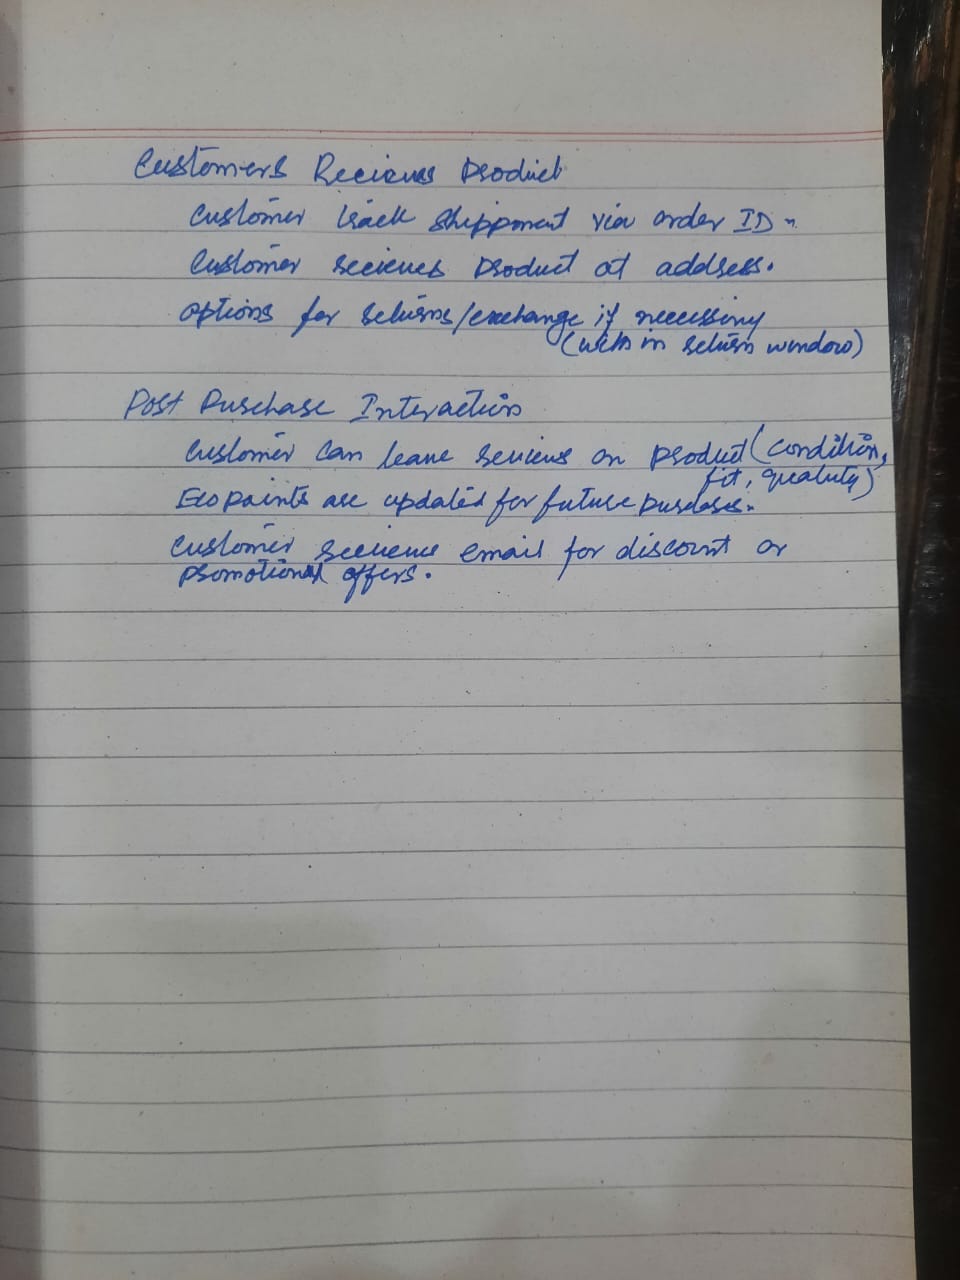 Customers Recieves Product
Customer track shippment via order ID.
Customer recieves product at address.
options for returns/exchange if necessary
(with in return window)
Post Purchase Interaction
Customer can leave reviews on product (condition,
fit, quality)
Eco points are updated for future purchases.
Customer recieves email for discount or
promotional offers.